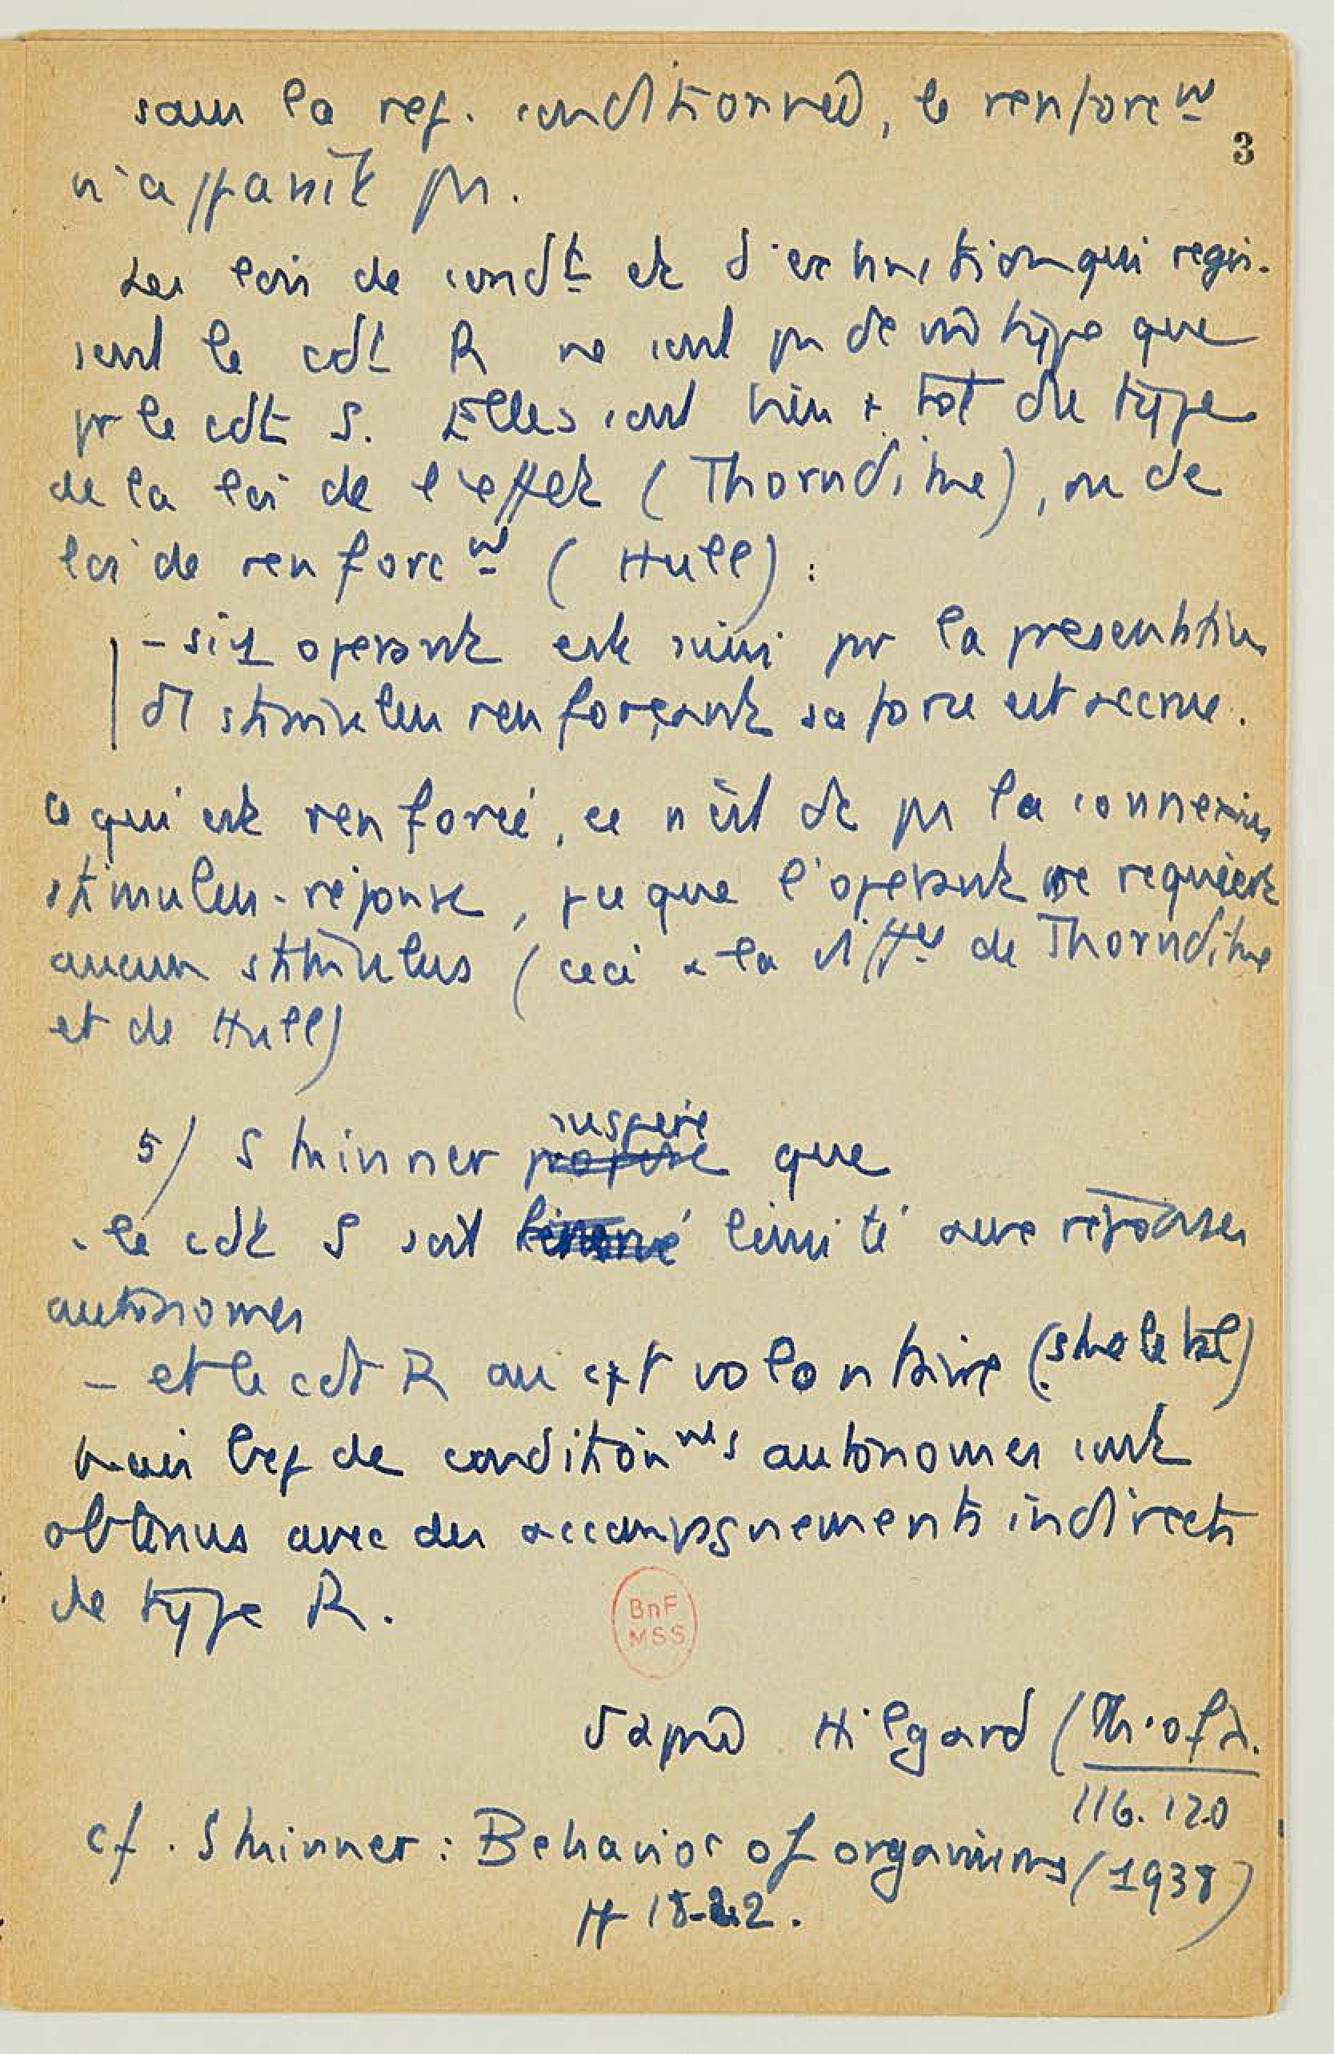 sans la rep. conditionnée, le renforc^nt
3
n'apparaît pas.
Les lois de cond^t et d'extinction qui régis-
sent le cdt R ne sont pas de mê type que
pr le cdt S. Elles sont bien + tôt du type
de la loi de l'effet (Thorndike), ou de
loi de renforc^nt (Hull) :
- si 1 operant est suivi par la présentation
d'1 stimulus renforçant sa force est accrue.
Ce qui est renforcé, ce n'est dc pas la connexion
stimulus-réponse, pce que l'operant ne requiert
aucun stimulus (ceci à la diff^ce de Thorndike
et de Hull)
5/ Skinner suggère que
- le cdt S soit limité aux réponses
autonomes
- et le cdt R au cpt volontaire (skeletal)
mais bcp de condition^nts autonomes sont
obtenus avec des accompagnements indirects
de type R.
BnF
MSS
d'après Hilgard (Th. of L.
116.120
cf. Skinner : Behavior of organisms (1938)
pp 18-22.